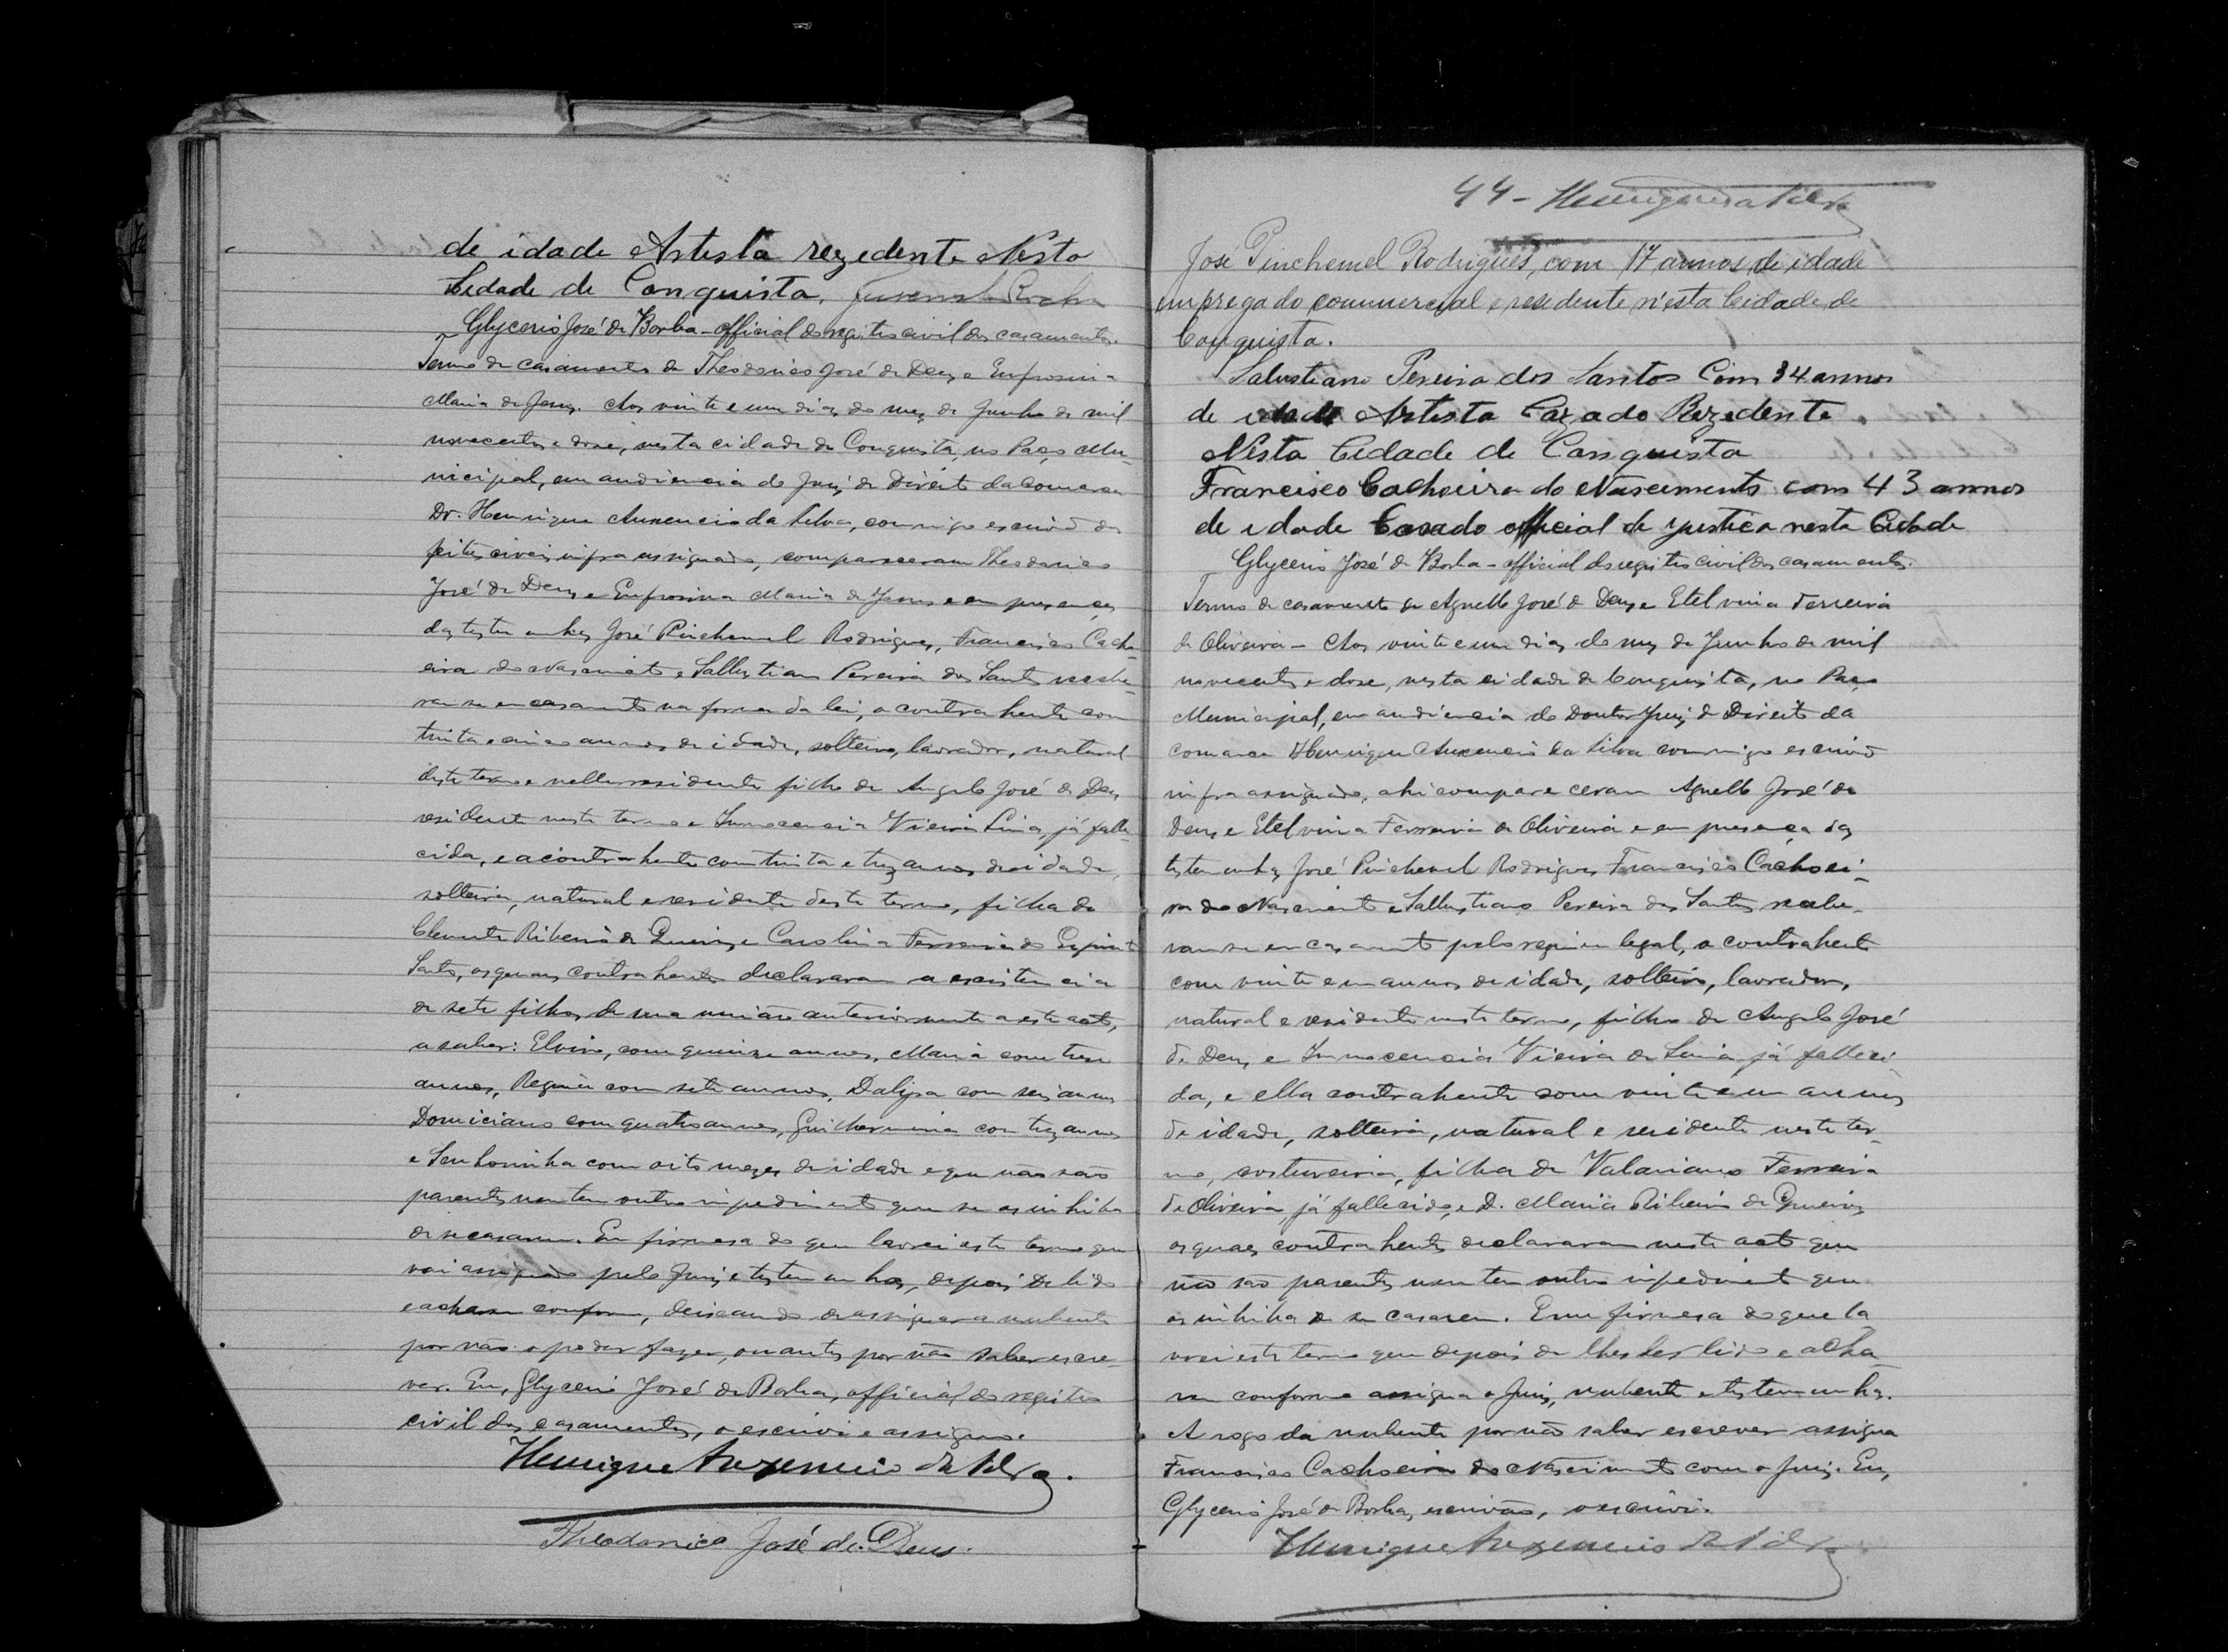 de idade Artista rezedente Nesta
Cidade de Conquista, Juvenal Rocha
Glycerio José de Borba - official do registro civil dos casamentos.
Termo de casamento de Theodorico José de Deus e Eufrosina
Maria de Jesus. Aos vinte e um dias do mez de Junho de mil
novecentos e dose, nesta cidade de Conquista, no Paço Mu-
nicipal, em audiencia do Juiz de Direito da Comarca
Dr. Henrique Auxencio da Silva, commigo escrivão dos
feitos civeis infra assignado, compareceram Theodorico
José de Deus e Eufrosina Maria de Jesus e em presença
das testemunhas José Pinchemel Rodrigues, Francisco Cacho-
eira do Nascimento e Sallustiano Pereira dos Santos recebe-
ram-se em casamento na forma da lei, o contrahente com
trinta e cinco annos de idade, solteiro, lavrador, natural
deste termo e nelle residente filho de Angelo José de Deus
residente neste termo e Innocencia Vieira Lima, já falle-
cida, e a contrahente com trinta e trez annos de idade,
solteira, natural e residente deste termo, filha de
Clemente Ribeiro de Queiroz e Carolina Ferreira do Espirito
Santo, os quaes contrahentes declararam a existencia
de sete filhos de sua união anteriormente a este acto,
a saber: Elvira, com quinze annos, Maria com treze
annos, Regina com sete annos, Daliza com seis annos
Domiciano com quatro annos, Guilhermina com trez annos
e Senhorinha com oito mezes de idade e que não são
parentes nem tem outro impedimento que se os inhiba
de se casarem. Em firmesa do que lavrei este termo que
vai assignado pelo Juiz e testemunhas, depois de lido
e achar-se conforme, deixando de assignar a nubente
por não o poder fazer, ou antes por não saber escre-
ver. Eu, Glycerio José de Borba, official do registro
civil dos casamentos, o escrevi e assigno.
Henrique Auxencio da Silva.
Theodorico José de Deus.
44 - Henrique da Silva
José Pinchemel Rodrigues, com 17 annos de idade
empregado commercial e residente n'esta Cidade de
Conquista.
Salustiano Pereira dos Santos Com 34 annos
de idade Artista Cazado Rezedente
Nesta Cedade de Conquista
Francisco Cachoeira do Nascimento com 43 annos
de idade Casado official de justiça nesta Cidade
Glycerio José de Borba - official do registro civil dos casamentos.
Termo de casamento de Agnello José de Deus e Etelvina Ferreira
de Oliveira - Aos vinte e um dias do mez de Junho de mil
novecentos e dose, nesta cidade de Conquista, no Paço
Municipal, em audiencia do Doutor Juiz de Direito da
comarca Henrique Auxencio da Silva commigo escrivão
infra assignado, ahi compareceram Agnello José de
Deus e Etelvina Ferreira de Oliveira e em presença das
testemunhas José Pinchemel Rodrigues Francisco Cachoei-
ra do Nascimento e Sallustiano Pereira dos Santos recebe-
ram-se em casamento pelo regimen legal, o contrahente
com vinte e um annos de idade, solteiro, lavrador,
natural e residente neste termo, filho de Angelo José
de Deus e Innocencia Vieira de Lima já falleci-
da, e ella contrahente com vinte e um annos
de idade, solteira, natural e residente neste ter-
mo, costureira, filha de Valeriano Ferreira
de Oliveira, já fallecido, e D. Maria Ribeiro de Queiroz
os quaes contrahentes declararam neste acto que
não são parentes nem tem outro impedimento que
os inhiba de se casarem. E em firmesa do que la-
vrei este termo que depois de lhes ser lido e acha-
rem conforme assigna o Juiz, nubente e testemunhas.
A rogo da nubente por não saber escrever assigna
Francisco Cachoeira do Nascimento com o Juiz. Eu,
Glycerio José de Borba, escrivão, o escrevi.
Henrique Auxencio da Silva